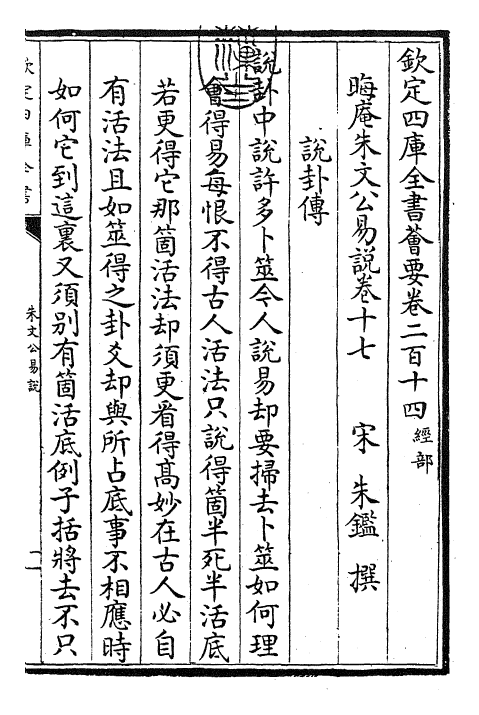 欽定四庫全書薈要卷二百十四 經部
晦庵朱文公易說卷十七 宋 朱鑑 撰
說卦傳
說卦中說許多卜筮今人說易却要掃去卜筮如何理
會得易每恨不得古人活法只說得箇半死半活底
若更得它那箇活法却須更看得高妙在古人必自
有活法且如筮得之卦爻却與所占底事不相應時
如何它到這裏又須别有箇活底例子括將去不只
欽定四庫全書
朱文公易說
一